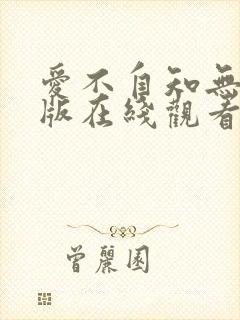 愛不自知無
版在綫觀看
曾麗園